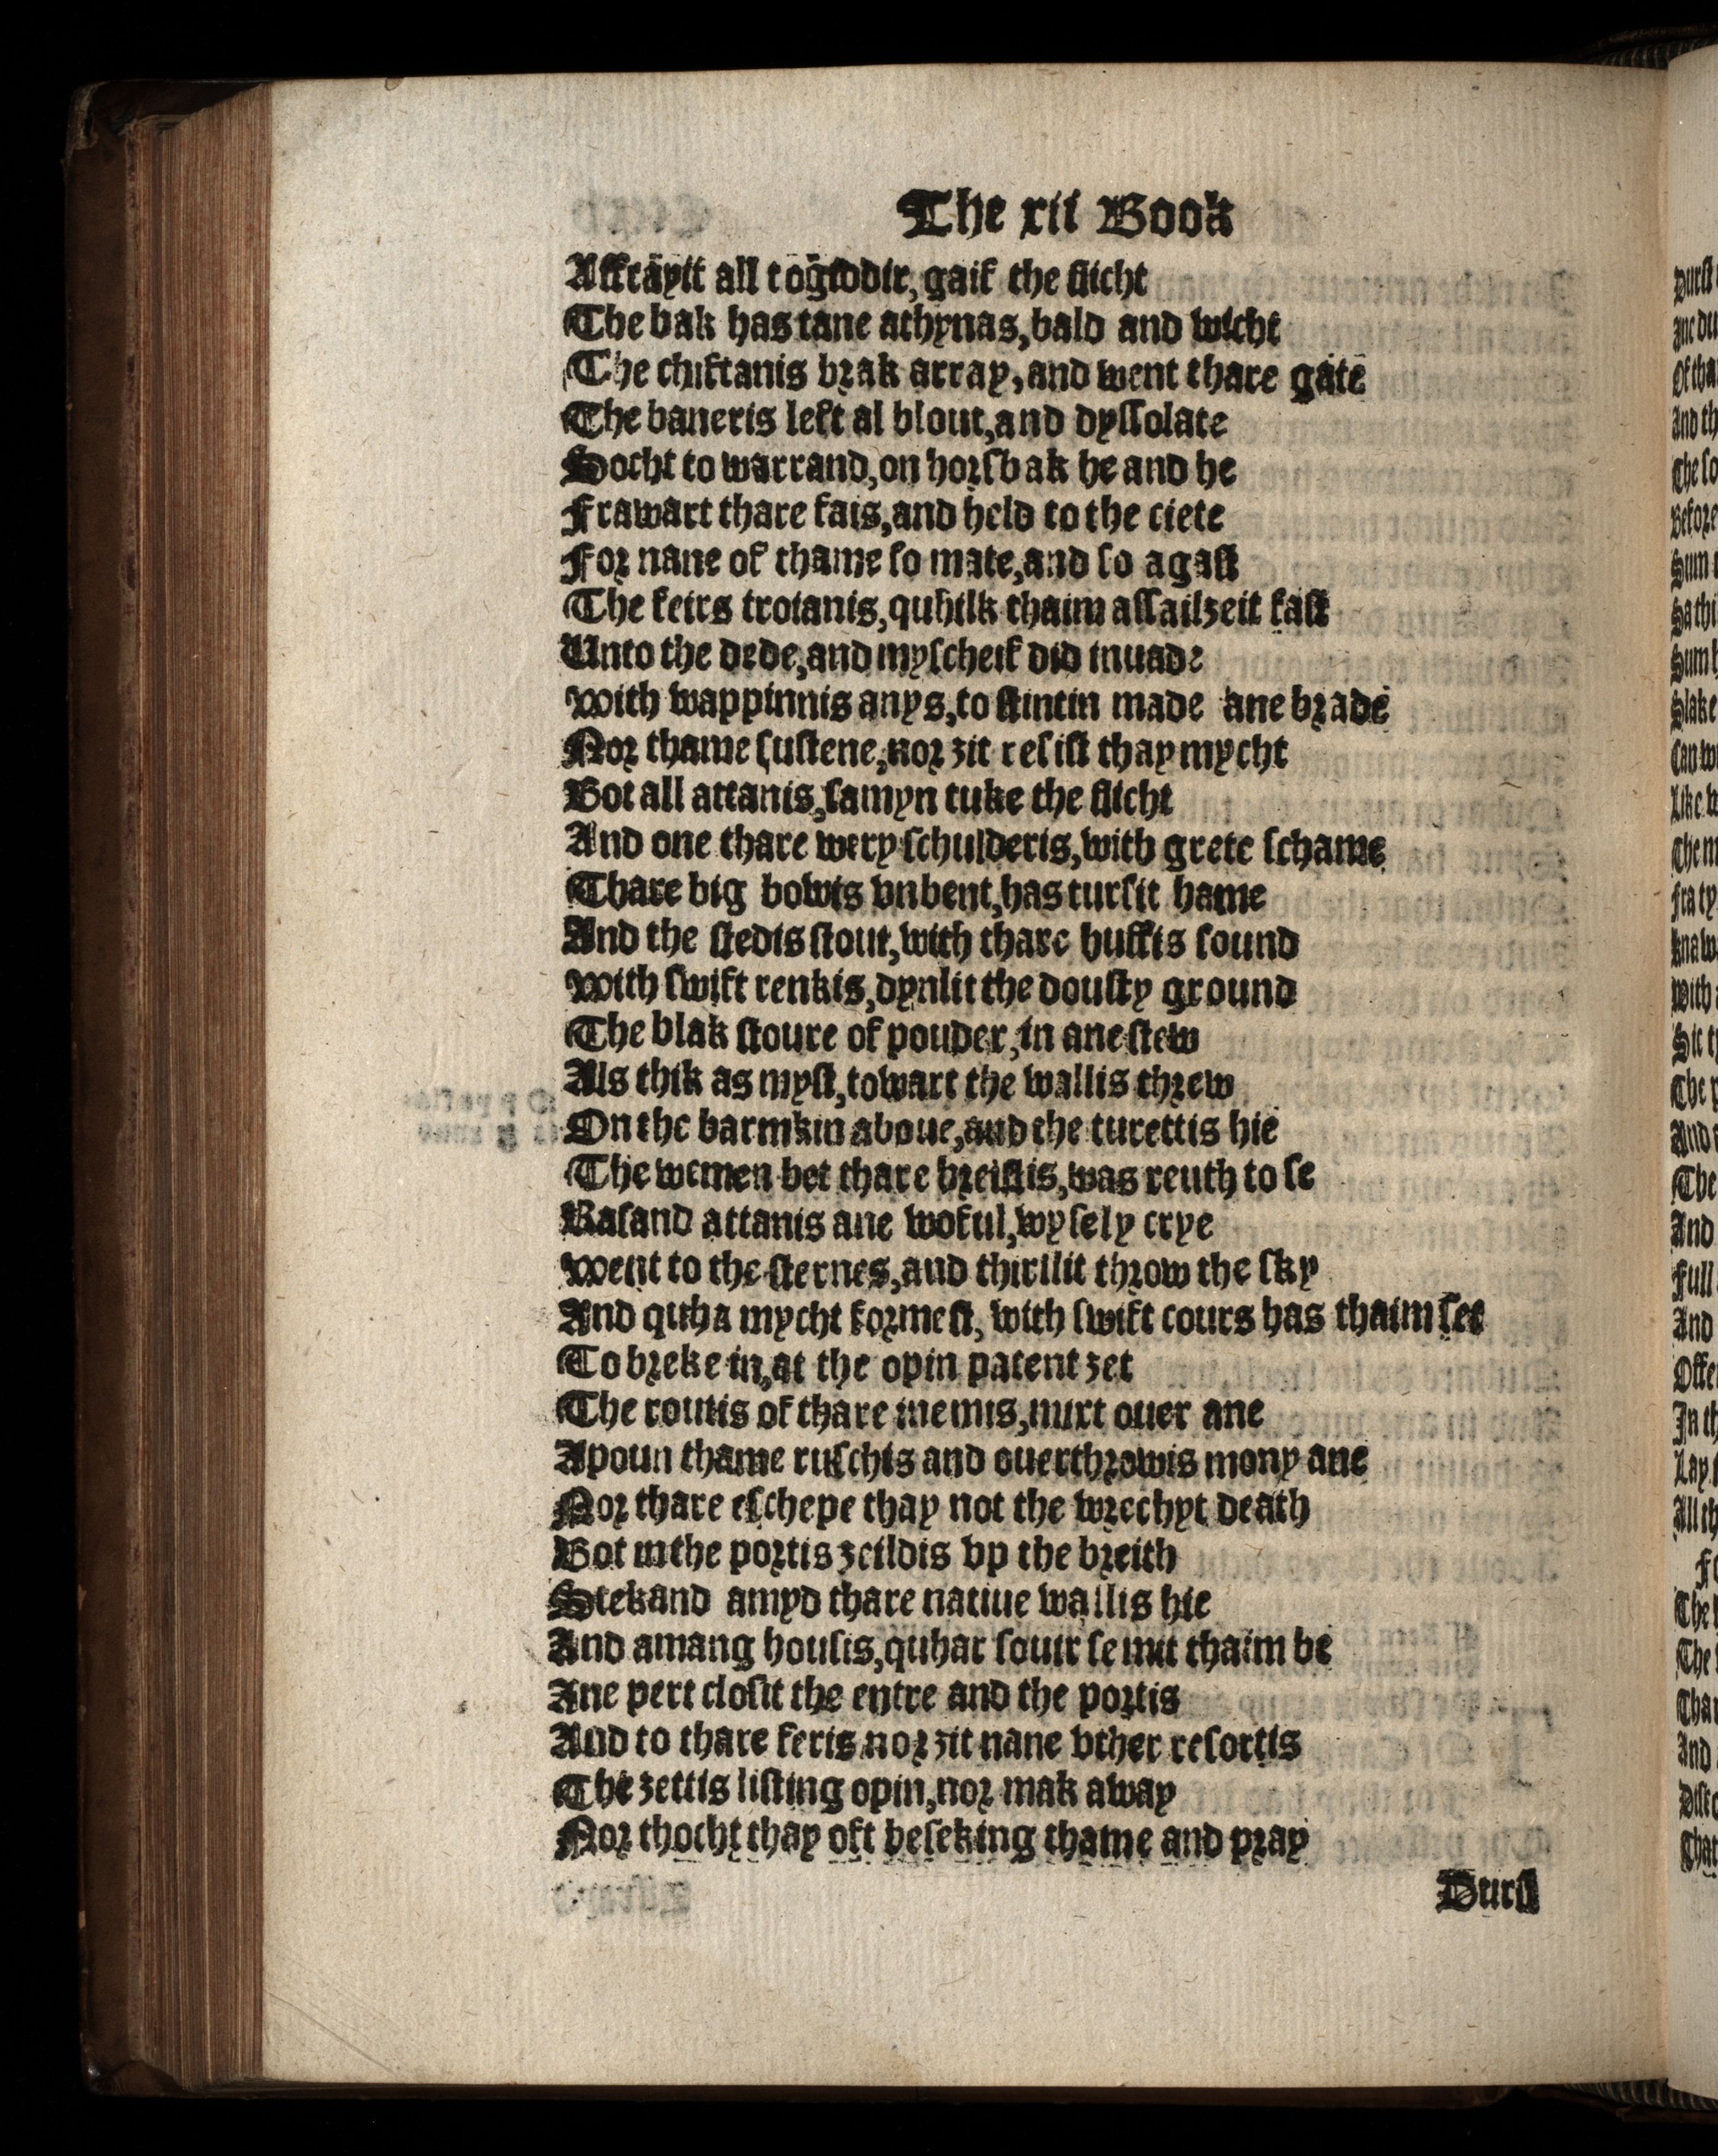 The xii Book
Affrayit all togiddir, gaif the flicht
The bak has tane athynas, bald and wicht
The chiftanis brak array, and went thare gate
The baneris left al blout, and dyssolate
Socht to warrand, on horsbak he and he
Frawart thare fais, and held to the ciete
For nane of thame so mate, and so agast
The feirs troianis, quhilk thaim assailzeit fast
Unto the dede, and myscheif did inuade
With wappinnis anys, to stintin made ane brade
Nor thame sustene, nor zit resist thay mycht
Bot all attanis, samyn tuke the flicht
And one thare wery schulderis, with grete schame
Thare big bowis vnbent, has tursit hame
And the stedis stout, with thare huffis sound
With swift renkis, dynlit the dousty ground
The blak stoure of pouder, in ane stew
Als thik as myst, towart the wallis threw
On the barmkin aboue, and the turettis hie
The wemen bet thare breistis, was reuth to se
Rasand attanis ane woful, wysely crye
Went to the sternes, and thirllit throw the sky
And quha mycht formest, with swift cours has thaim set
To breke in, at the opin patent zet
The routis of thare inemis, mixt ouer ane
Apoun thame ruschis and ouerthrowis mony ane
Nor thare eschepe thay not the wrechyt death
Bot in the portis zeildis vp the breith
Stekand amyd thare natiue wallis hie
And amang housis, quhar souir semit thaim be
Ane pert closit the entre and the portis
And to thare feris nor zit nane vther resortis
The zettis listing opin, nor mak away
Nor thocht thay oft beseking thame and pray
Durst